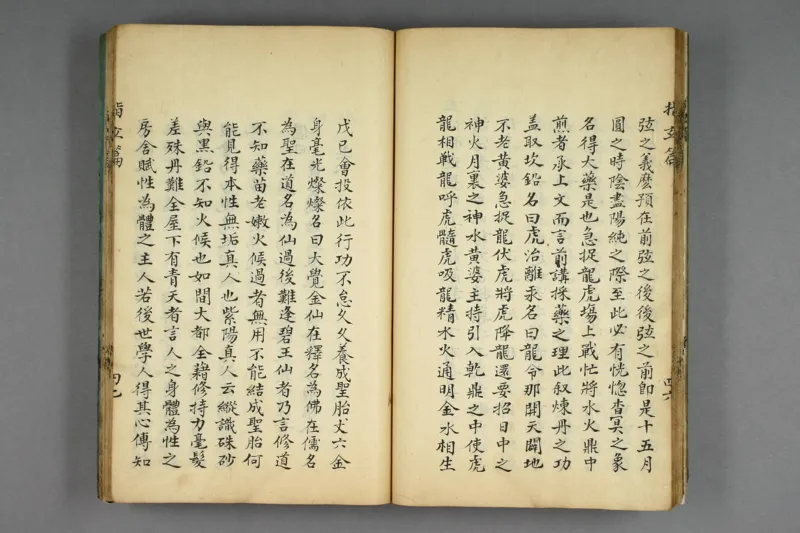 弦之義麽預在前弦之後後弦之前卽是十五月
圓之時陰盡陽純之際至此必有恍惚杳冥之象
名得大藥是也急捉龍虎塲上戰忙將水火鼎中
煎者承上文而言前講採藥之理此叙煉丹之功
盖取坎鉛名曰虎冶離汞名曰龍令那開天闢地
不老黃婆急捉龍伏虎將虎降龍還要招日中之
神火月裏之神水黃婆主持引入乾鼎之中使虎
龍相戰龍呼虎髓虎吸龍精水火通明金水相生
戊已會投依此行功不怠久久養成聖胎丈六金
身毫光燦燦名曰大覺金仙在釋名為佛在儒名
為聖在道名為仙過後難逢碧玉仙者乃言修道
不知藥苗老嫩火候過者無用不能結成聖胎何
能見得本性無垢真人也紫陽真人云縱識硃砂
與黑鉛不知火候也如間大都全藉修持力毫髮
差殊丹難全屋下有青天者言人之身體為性之
房舍賦性為體之主人若後世學人得其心傳知
指玄篇
四六
指玄篇
四七